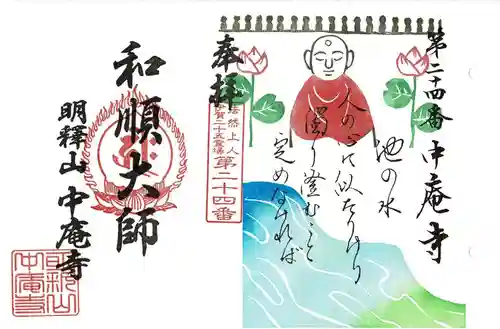 第二十四番 中庵寺
池の水
人の心に似たりけり
濁り澄むこと
定めなければ
奉拝
法然上人
滋賀二十五霊場
第二十四番
和順大師
明釋山 中庵寺